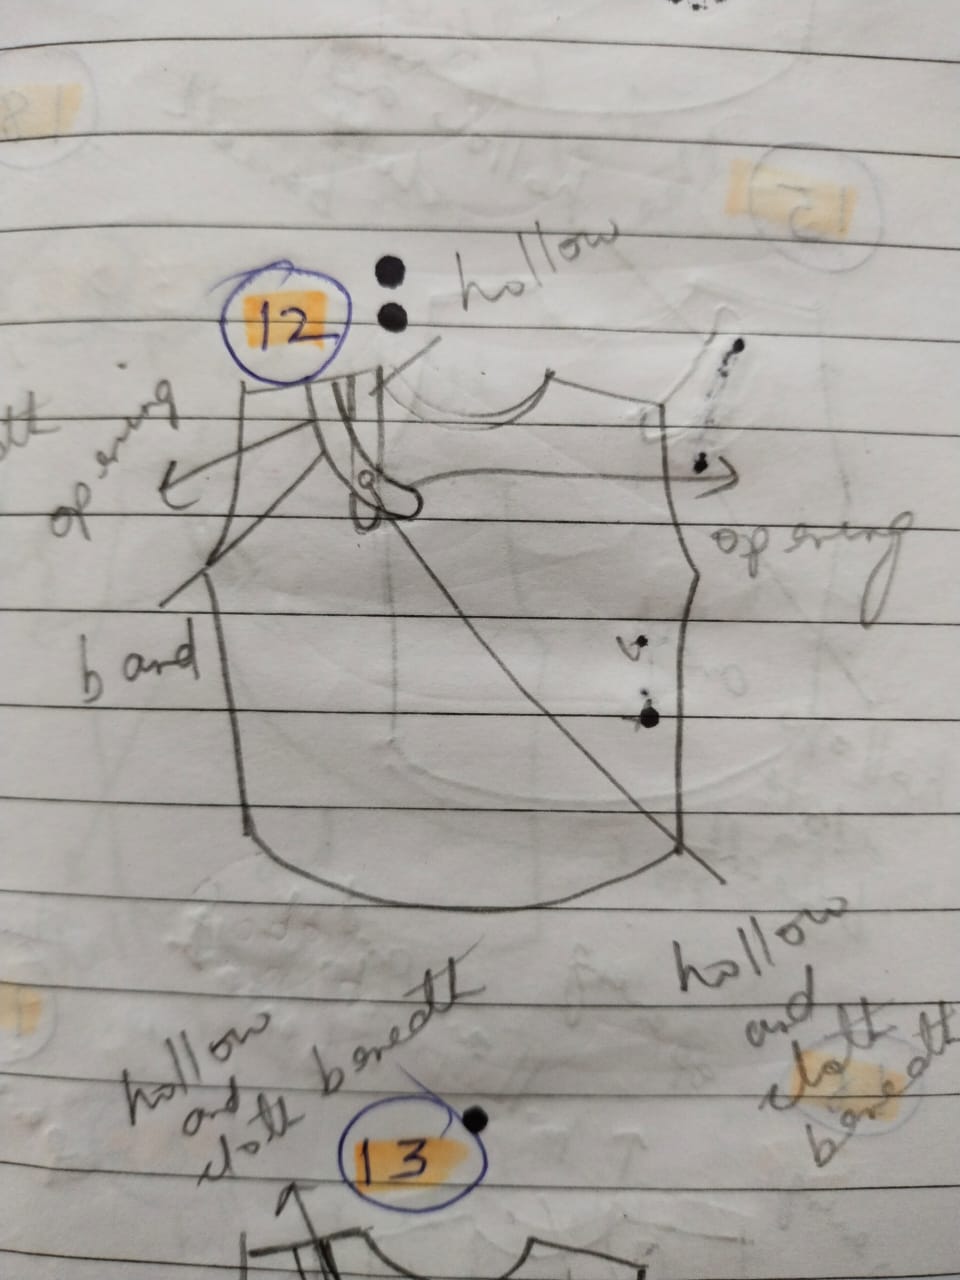 12
hollow
opening
opening
band
hollow
and
cloth
beneath
hollow
and
cloth beneath
13